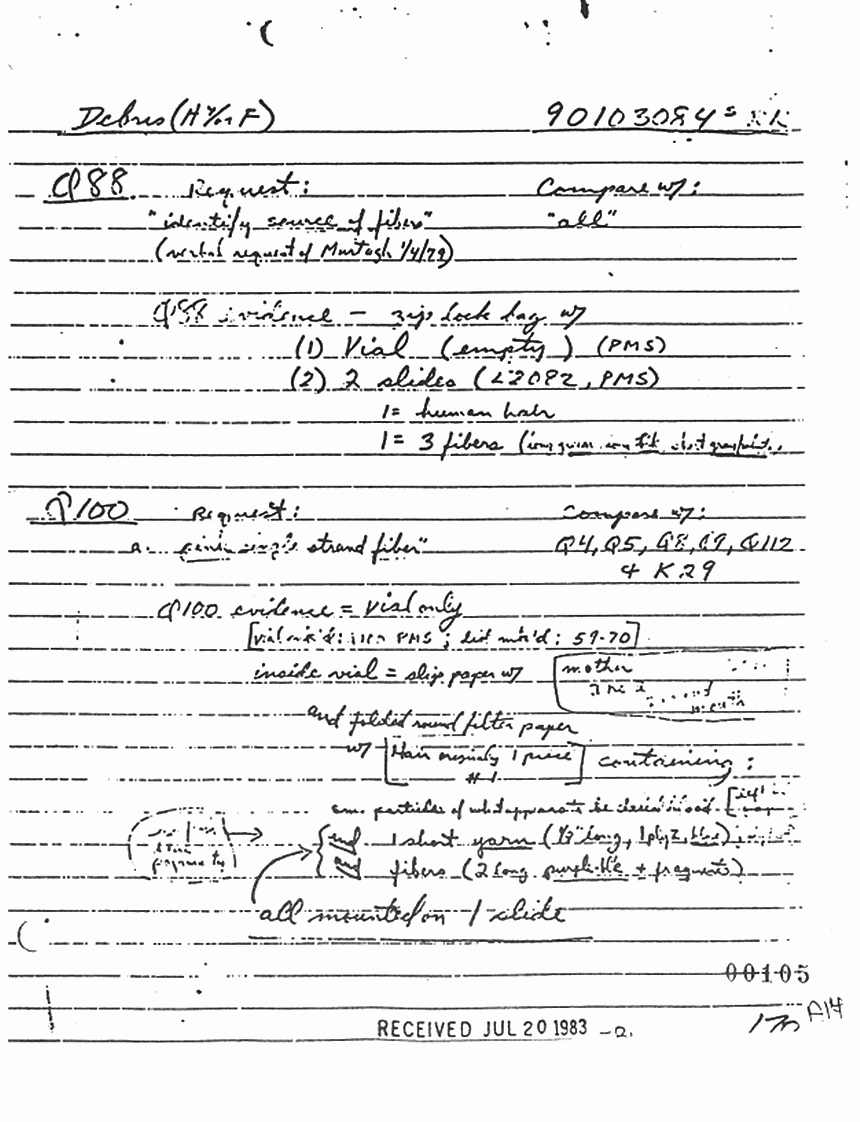 Debris (H &/or F) 90103084 S
Q88 Request: Compare w/:
"identify source of fibers" "all"
(verbal request of Murtagh 1/4/79)
Q88 evidence — zip lock bag w/
(1) Vial (empty) (PMS)
(2) 2 slides (L2082, PMS)
1 = human hair
1 = 3 fibers (
Q100 Request: Compare w/:
a. pink single strand fiber" Q4, Q5, Q8, Q9, Q112
+ K29
Q100 evidence = vial only
[vial mk'd: PMS; lid mk'd: 59-70]
inside vial = slip paper w/ mother
and folded round filter paper
w/ [Hair originally 1 piece #1] containing:
particles of what appears to be
and 1 short yarn (1/8" long, 1 ply Z, blue)
and fibers (2 long purple + fragments)
all mounted on 1 slide
00105
RECEIVED JUL 20 1983 -2.
A14